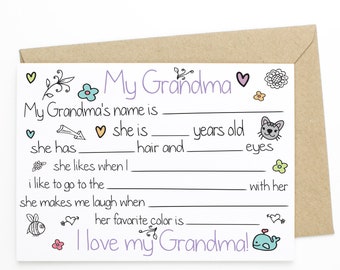 My Grandma
My Grandma's name is
she is ______ years old
she has ______ hair and ______ eyes
she likes when I ______
i like to go to the ______ with her
she makes me laugh when ______
her favorite color is ______
I love my Grandma!